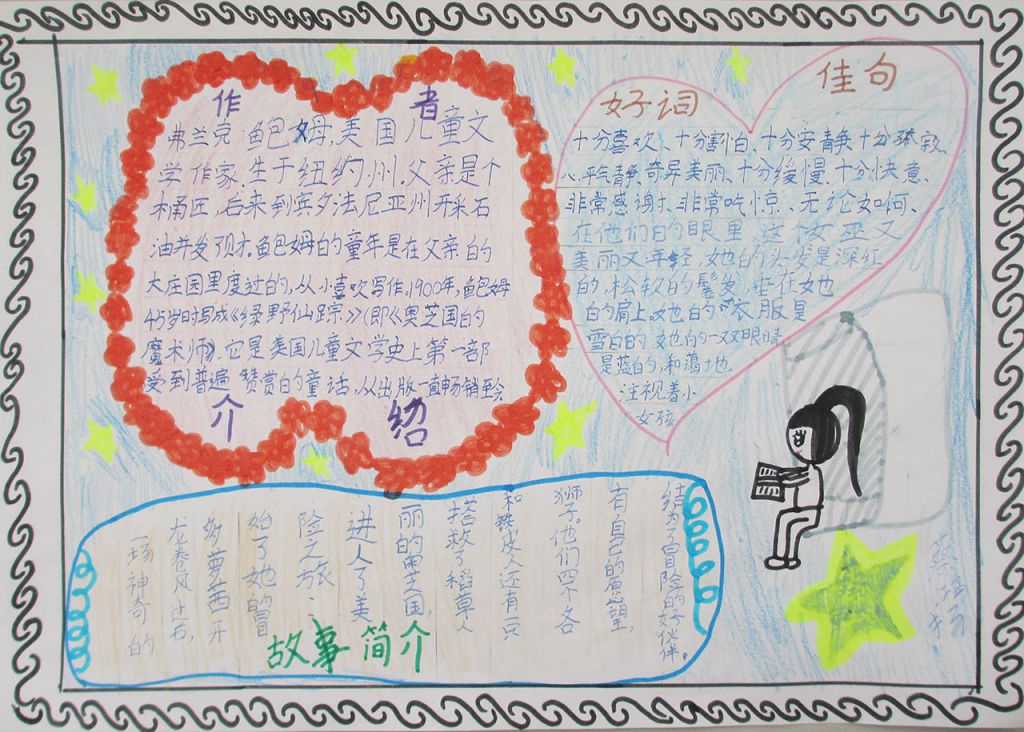 作者
弗兰克·鲍姆,美国儿童文
学作家.生于纽约州.父亲是个
桶匠,后来到宾夕法尼亚州开采石
油井发现才.鲍姆的童年是在父亲的
大庄园里度过的,从小喜欢写作.1900年,鲍姆
45岁时写成《绿野仙踪》(即《奥芝国的
魔术师》.它是美国儿童文学史上第一部
受到普遍赞赏的童话.从出版一直畅销至今
介绍
好词
佳句
十分喜欢、十分割白、十分安静、十分孤寂、
心平气静、奇异美丽、十分缓慢、十分快意、
非常感谢、非常吃惊、无论如何、
在他们的眼里,这个女巫又
美丽又年轻.她的头发是深红
的,松软的鬈发,垂在她
的肩上.她的衣服是
雪白的.她的一双眼睛
是蓝的,和蔼地
注视着小
女孩
一场神奇的
龙卷风过后,
多萝西开
始了她的冒
险之旅…
进入了美
丽的奥芝国,
搭救了稻草人
和铁皮人还有
狮子。他们四个各
有自己的愿望,
结为了冒险的好伙伴。
故事简介